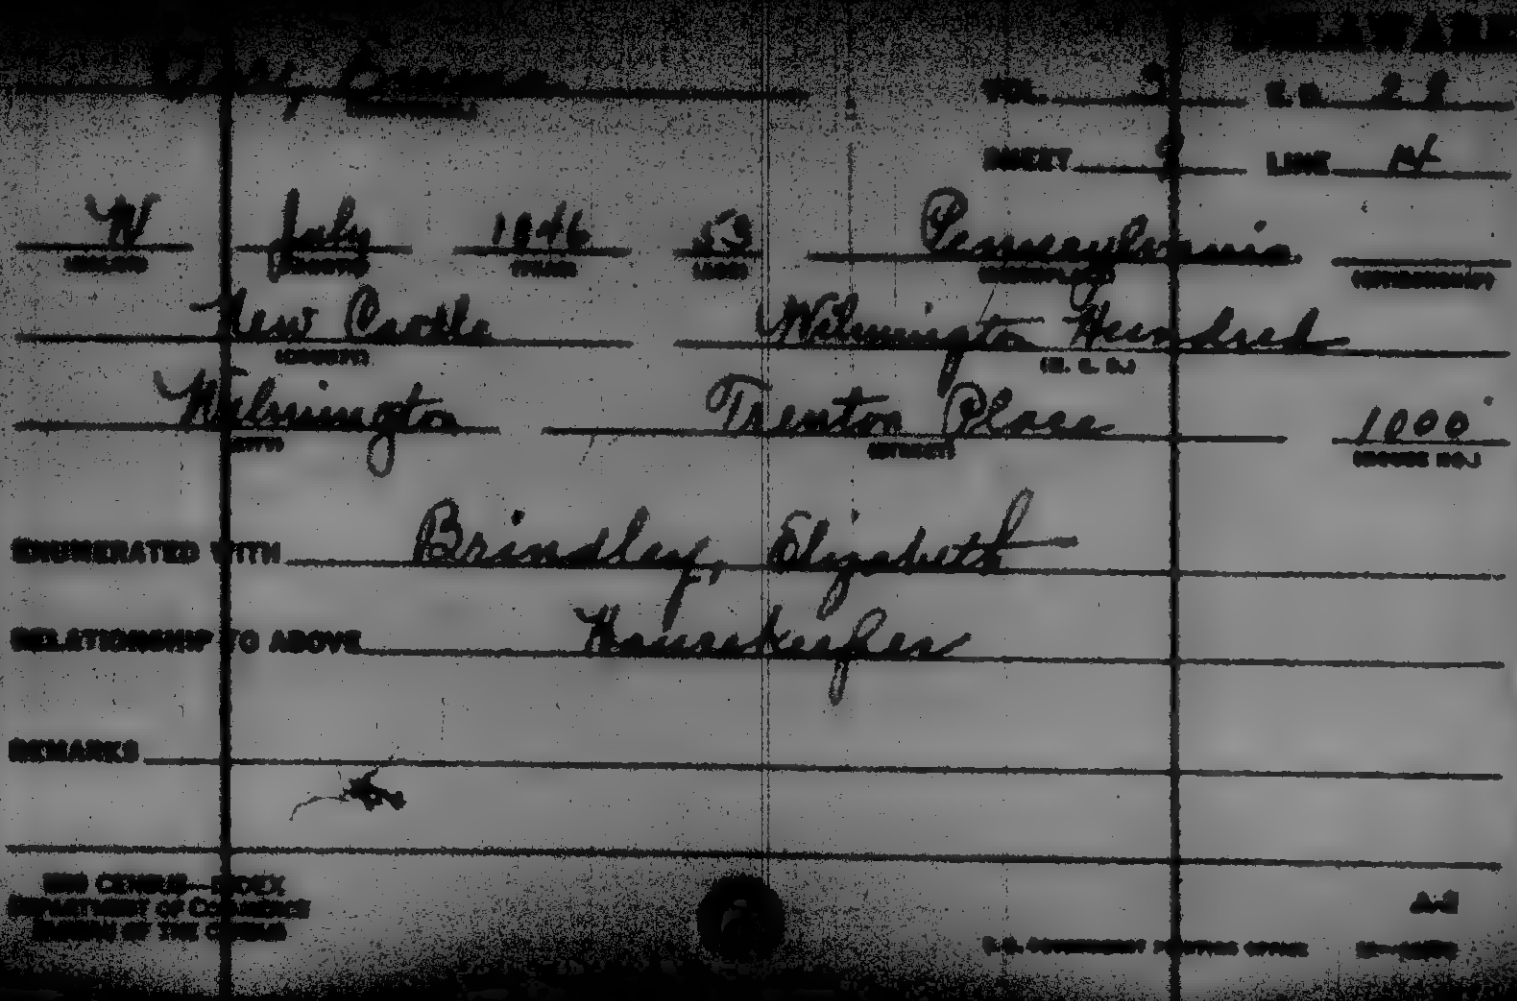 DELAWARE
Emma
VOL. 3 E. D. 22
SHEET 9 LINE
W July 1846 53 Pennsylvania
(COLOR) (MONTH) (YEAR) (AGE) (BIRTHPLACE) (CITIZENSHIP)
New Castle Wilmington Hundred
(COUNTY) (M. C. D.)
Wilmington Trenton Place 1000
(CITY) (STREET) (HOUSE NO.)
ENUMERATED WITH Brindley, Elizabeth
RELATIONSHIP TO ABOVE Housekeeper
REMARKS
1900 CENSUS—INDEX
DEPARTMENT OF COMMERCE
BUREAU OF THE CENSUS
U.S. GOVERNMENT PRINTING OFFICE